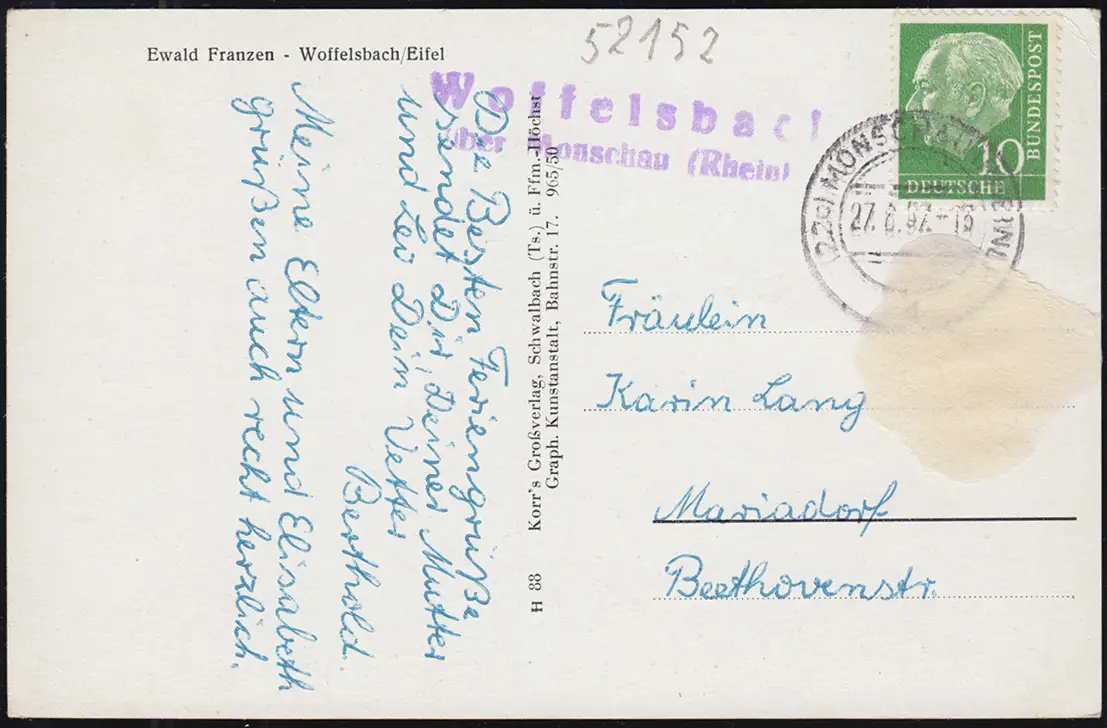 Ewald Franzen - Woffelsbach/Eifel
52152
Woffelsbach
über Monschau (Rhein)
BUNDESPOST
10
DEUTSCHE
(22c) MONSCHAU
27. 57.-18
Die Besten Feriengrüße
sendet Dir, Deiner Mutter
und Leo Dein Vetter
Berthold.
Meine Eltern und Elisabeth
grüßen auch recht herzlich.
H 88 Korr's Großverlag, Schwalbach (Ts.) ü. Ffm.-Höchst
Graph. Kunstanstalt, Bahnstr. 17. 965/50
Fräulein
Karin Lang
Mariadorf
Beethovenstr.